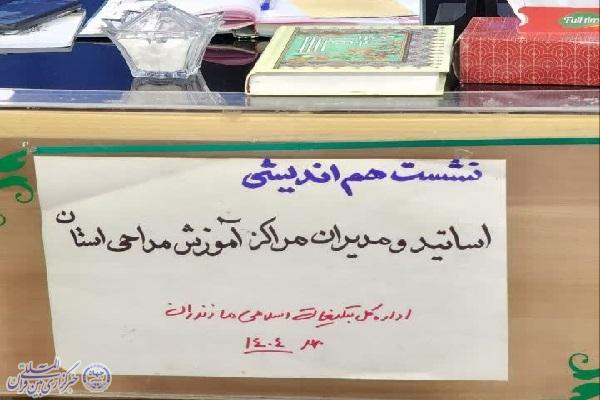 Full time
نشست هم اندیشی
اساتید و مدیران مراکز آموزش مداحی استان
اداره کل تبلیغات اسلامی مازندران
مهر ۱۴۰۴
خبرگزاری بین المللی قرآن